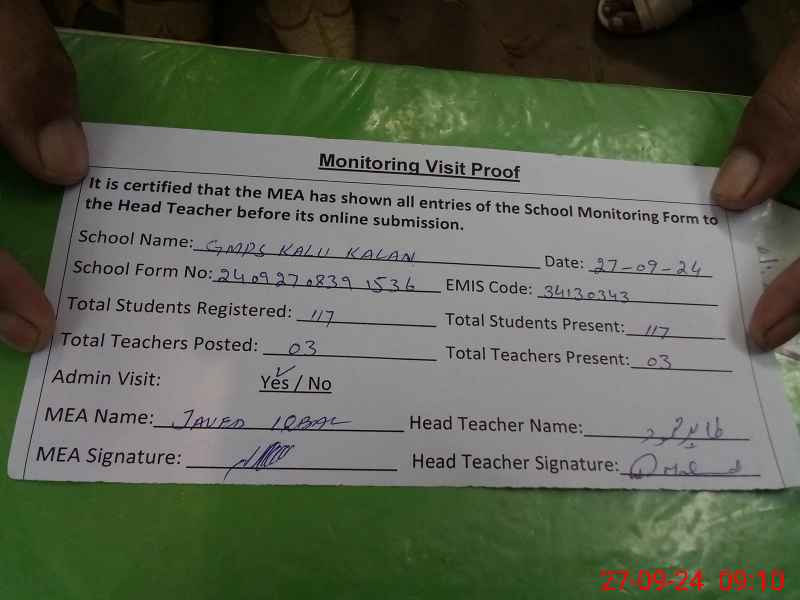 Monitoring Visit Proof
It is certified that the MEA has shown all entries of the School Monitoring Form to
the Head Teacher before its online submission.
School Name: GMPS KALU KALAN Date: 27-09-24
School Form No: 2409270839 1536 EMIS Code: 34130343
Total Students Registered: 117 Total Students Present: 117
Total Teachers Posted: 03 Total Teachers Present: 03
Admin Visit: Yes / No
MEA Name: JAVED IQBAL Head Teacher Name:
MEA Signature: Head Teacher Signature:
27-09-24 09:10